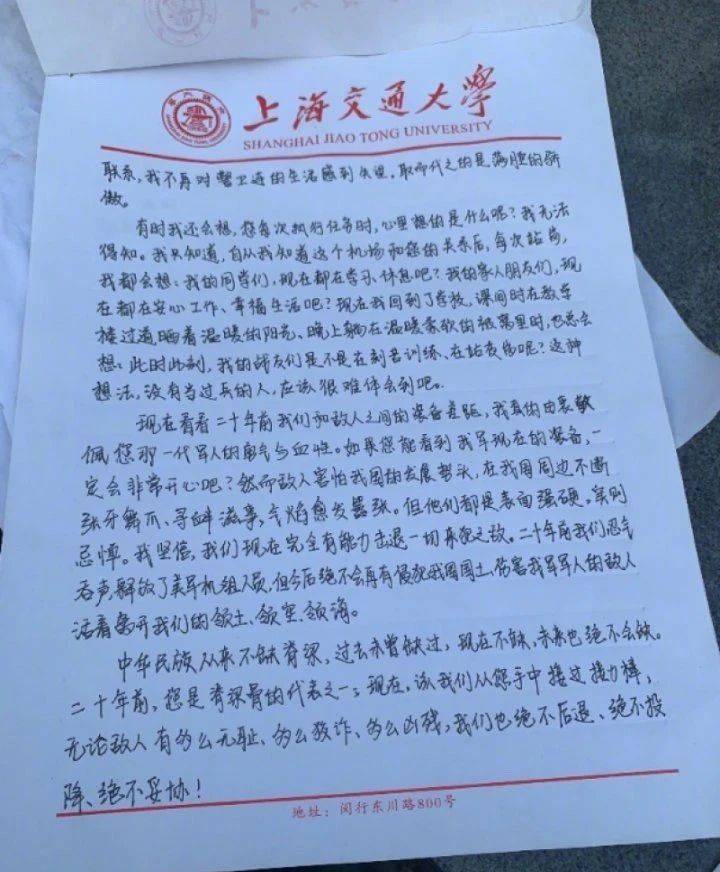 上海交通大学
SHANGHAI JIAO TONG UNIVERSITY
联系,我不再对警卫连的生活感到失望,取而代之的是满腔的骄
傲。
有时我还会想,您每次执行任务时,心里想的是什么呢?我无法
得知。我只知道,自从我知道这个机场和您的关系后,每次站岗,
我都会想:我的同学们,现在都在学习、休息吧?我的家人朋友们,现
在都在安心工作、幸福生活吧?现在我回到了学校,课间时在教学
楼过道晒着温暖的阳光、晚上躺在温暖柔软的被窝里时,也总会
想:此时此刻,我的战友们是不是在刻苦训练、在站夜岗呢?这种
想法,没有当过兵的人,应该很难体会到吧。
现在看看二十年前我们和敌人之间的装备差距,我真的由衷敬
佩您那一代军人的勇气与血性。如果您能看到我军现在的装备,一
定会非常开心吧?然而敌人害怕我国的发展势头,在我国周边不断
张牙舞爪、寻衅滋事,气焰愈发嚣张。但他们都是表面强硬,实则
忌惮。我坚信,我们现在完全有能力击退一切来犯之敌。二十年前我们忍气
吞声,释放了美军机组人员,但今后绝不会再有侵犯我国国土、伤害我军军人的敌人
活着离开我们的领土、领空、领海。
中华民族从来不缺脊梁,过去未曾缺过,现在不缺,未来也绝不会缺。
二十年前,您是脊梁骨的代表之一;现在,该我们从您手中接过接力棒,
无论敌人有多么无耻、多么狡诈、多么凶残,我们也绝不后退、绝不投
降、绝不妥协!
地址:闵行东川路800号